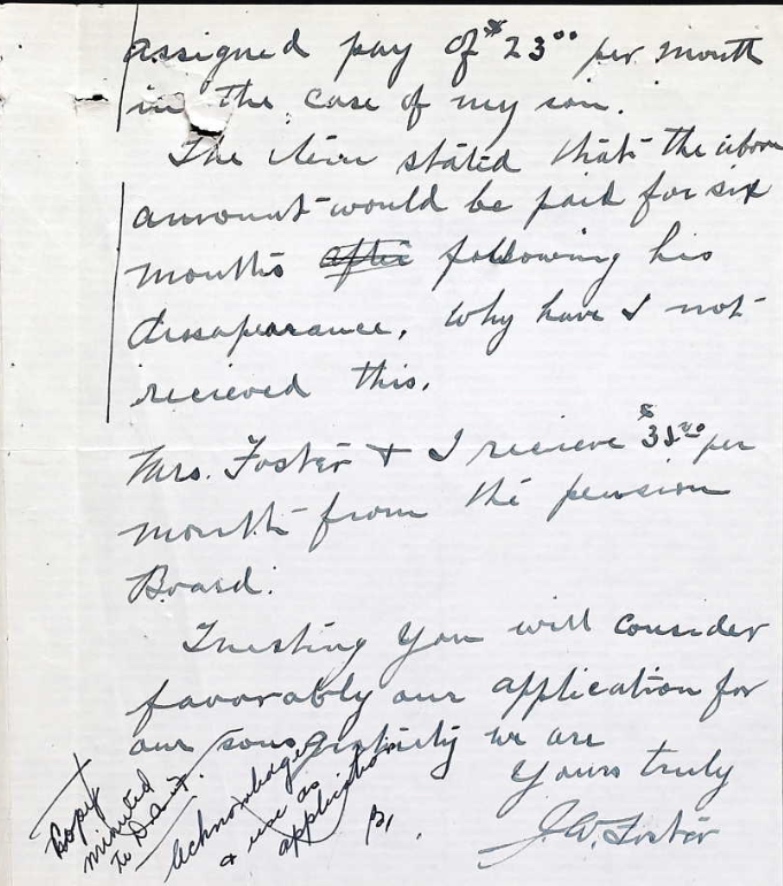 assigned pay of $23⁰⁰ per month
in the case of my son.
The item stated that the above
amount would be paid for six
months after following his
dissapearance. Why have I not
recieved this.
Mrs. Foster & I recieve $35⁰⁰ per
month from the pension
Board.
Trusting you will consider
favorably our application for
our sons gratuity we are
Yours truly
J.W. Foster
Copy
minuted
to D.A.
Acknowledge
& use as
application